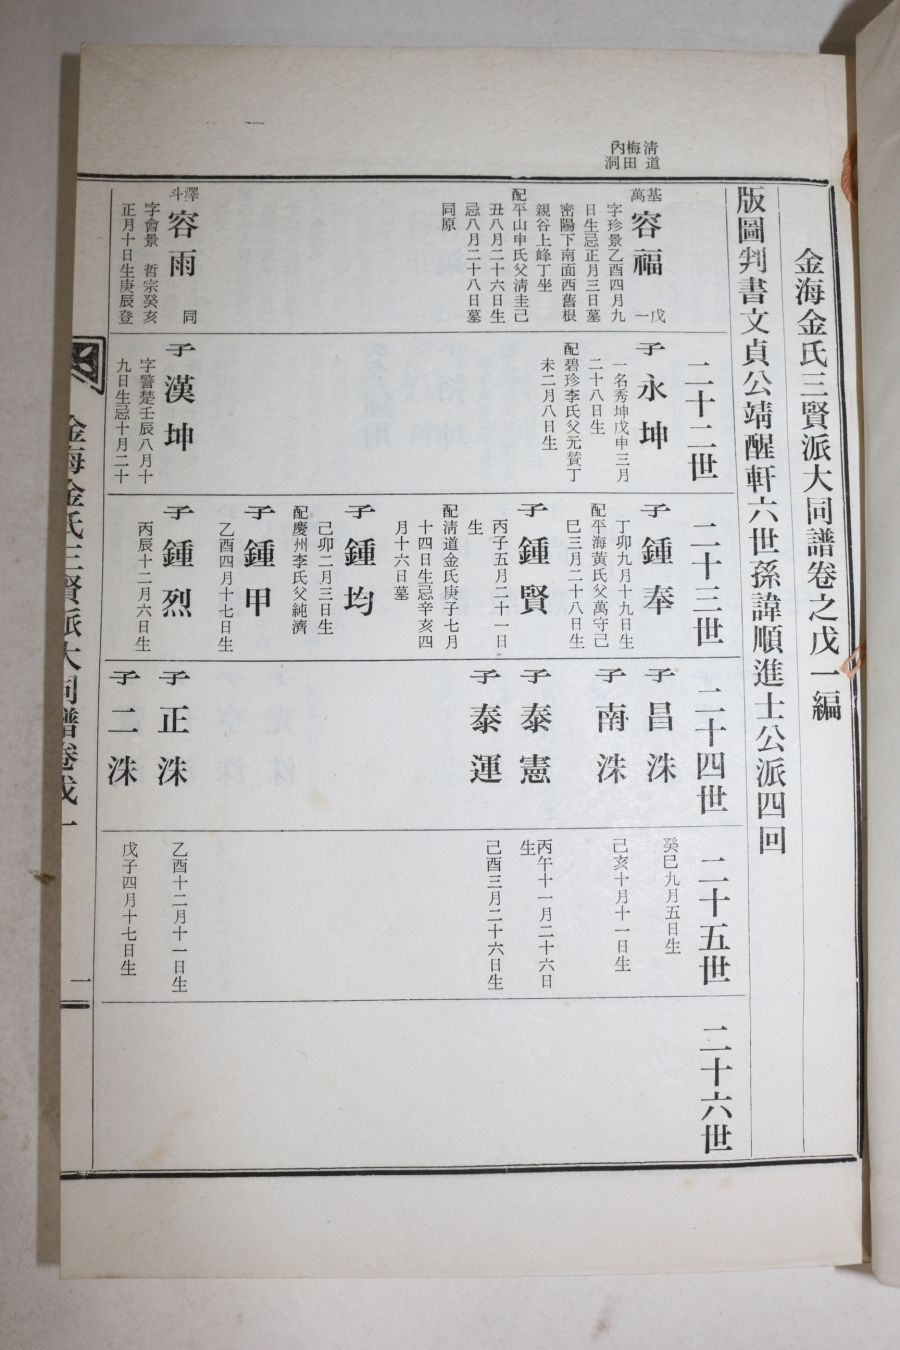 淸道
梅田
內洞
金海金氏三賢派大同譜卷之戊一編
版圖判書文貞公靖醒軒六世孫諱順進士公派四回
基萬
容福
戊一
字珍景乙酉四月九
日生忌正月三日墓
密陽下南面西舊根
親谷上峰丁坐
配平山申氏父淸圭己
丑八月二十六日生
忌八月二十八日墓
同原
澤斗
容雨
同
字會景 哲宗癸亥
正月十日生庚辰登
二十二世
子永坤
一名秀坤戊申三月
二十八日生
配碧珍李氏父元贊丁
未二月八日生
子漢坤
字警楚壬辰八月十
九日生忌十月二十
二十三世
子鍾奉
丁卯九月十九日生
配平海黃氏父萬守己
巳三月二十八日生
子鍾賢
丙子五月二十一日
生
配淸道金氏庚子七月
十四日生忌辛亥四
月十六日墓
子鍾均
己卯二月三日生
配慶州李氏父純濟
子鍾甲
乙酉四月十七日生
子鍾烈
丙辰十二月六日生
二十四世
子昌洙
子南洙
子泰憲
子泰運
子正洙
子二洙
二十五世
癸巳九月五日生
己亥十月十一日生
丙午十一月二十六日
生
己酉三月二十六日生
乙酉十二月十一日生
戊子四月十七日生
二十六世
金海金氏三賢派大同譜卷戊一
一